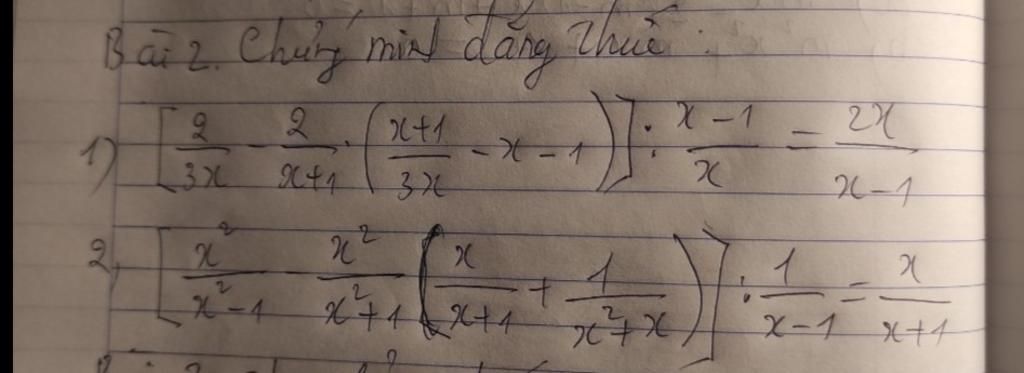 Bài 2. Chứng minh đẳng thức:
1) [2/3x - 2/x+1 . (x+1/3x - x - 1)] : x-1/x = 2x/x-1
2, [x²/x²-1 - x²/x²+1 (x/x+1 + 1/x²+x)] : 1/x-1 = x/x+1